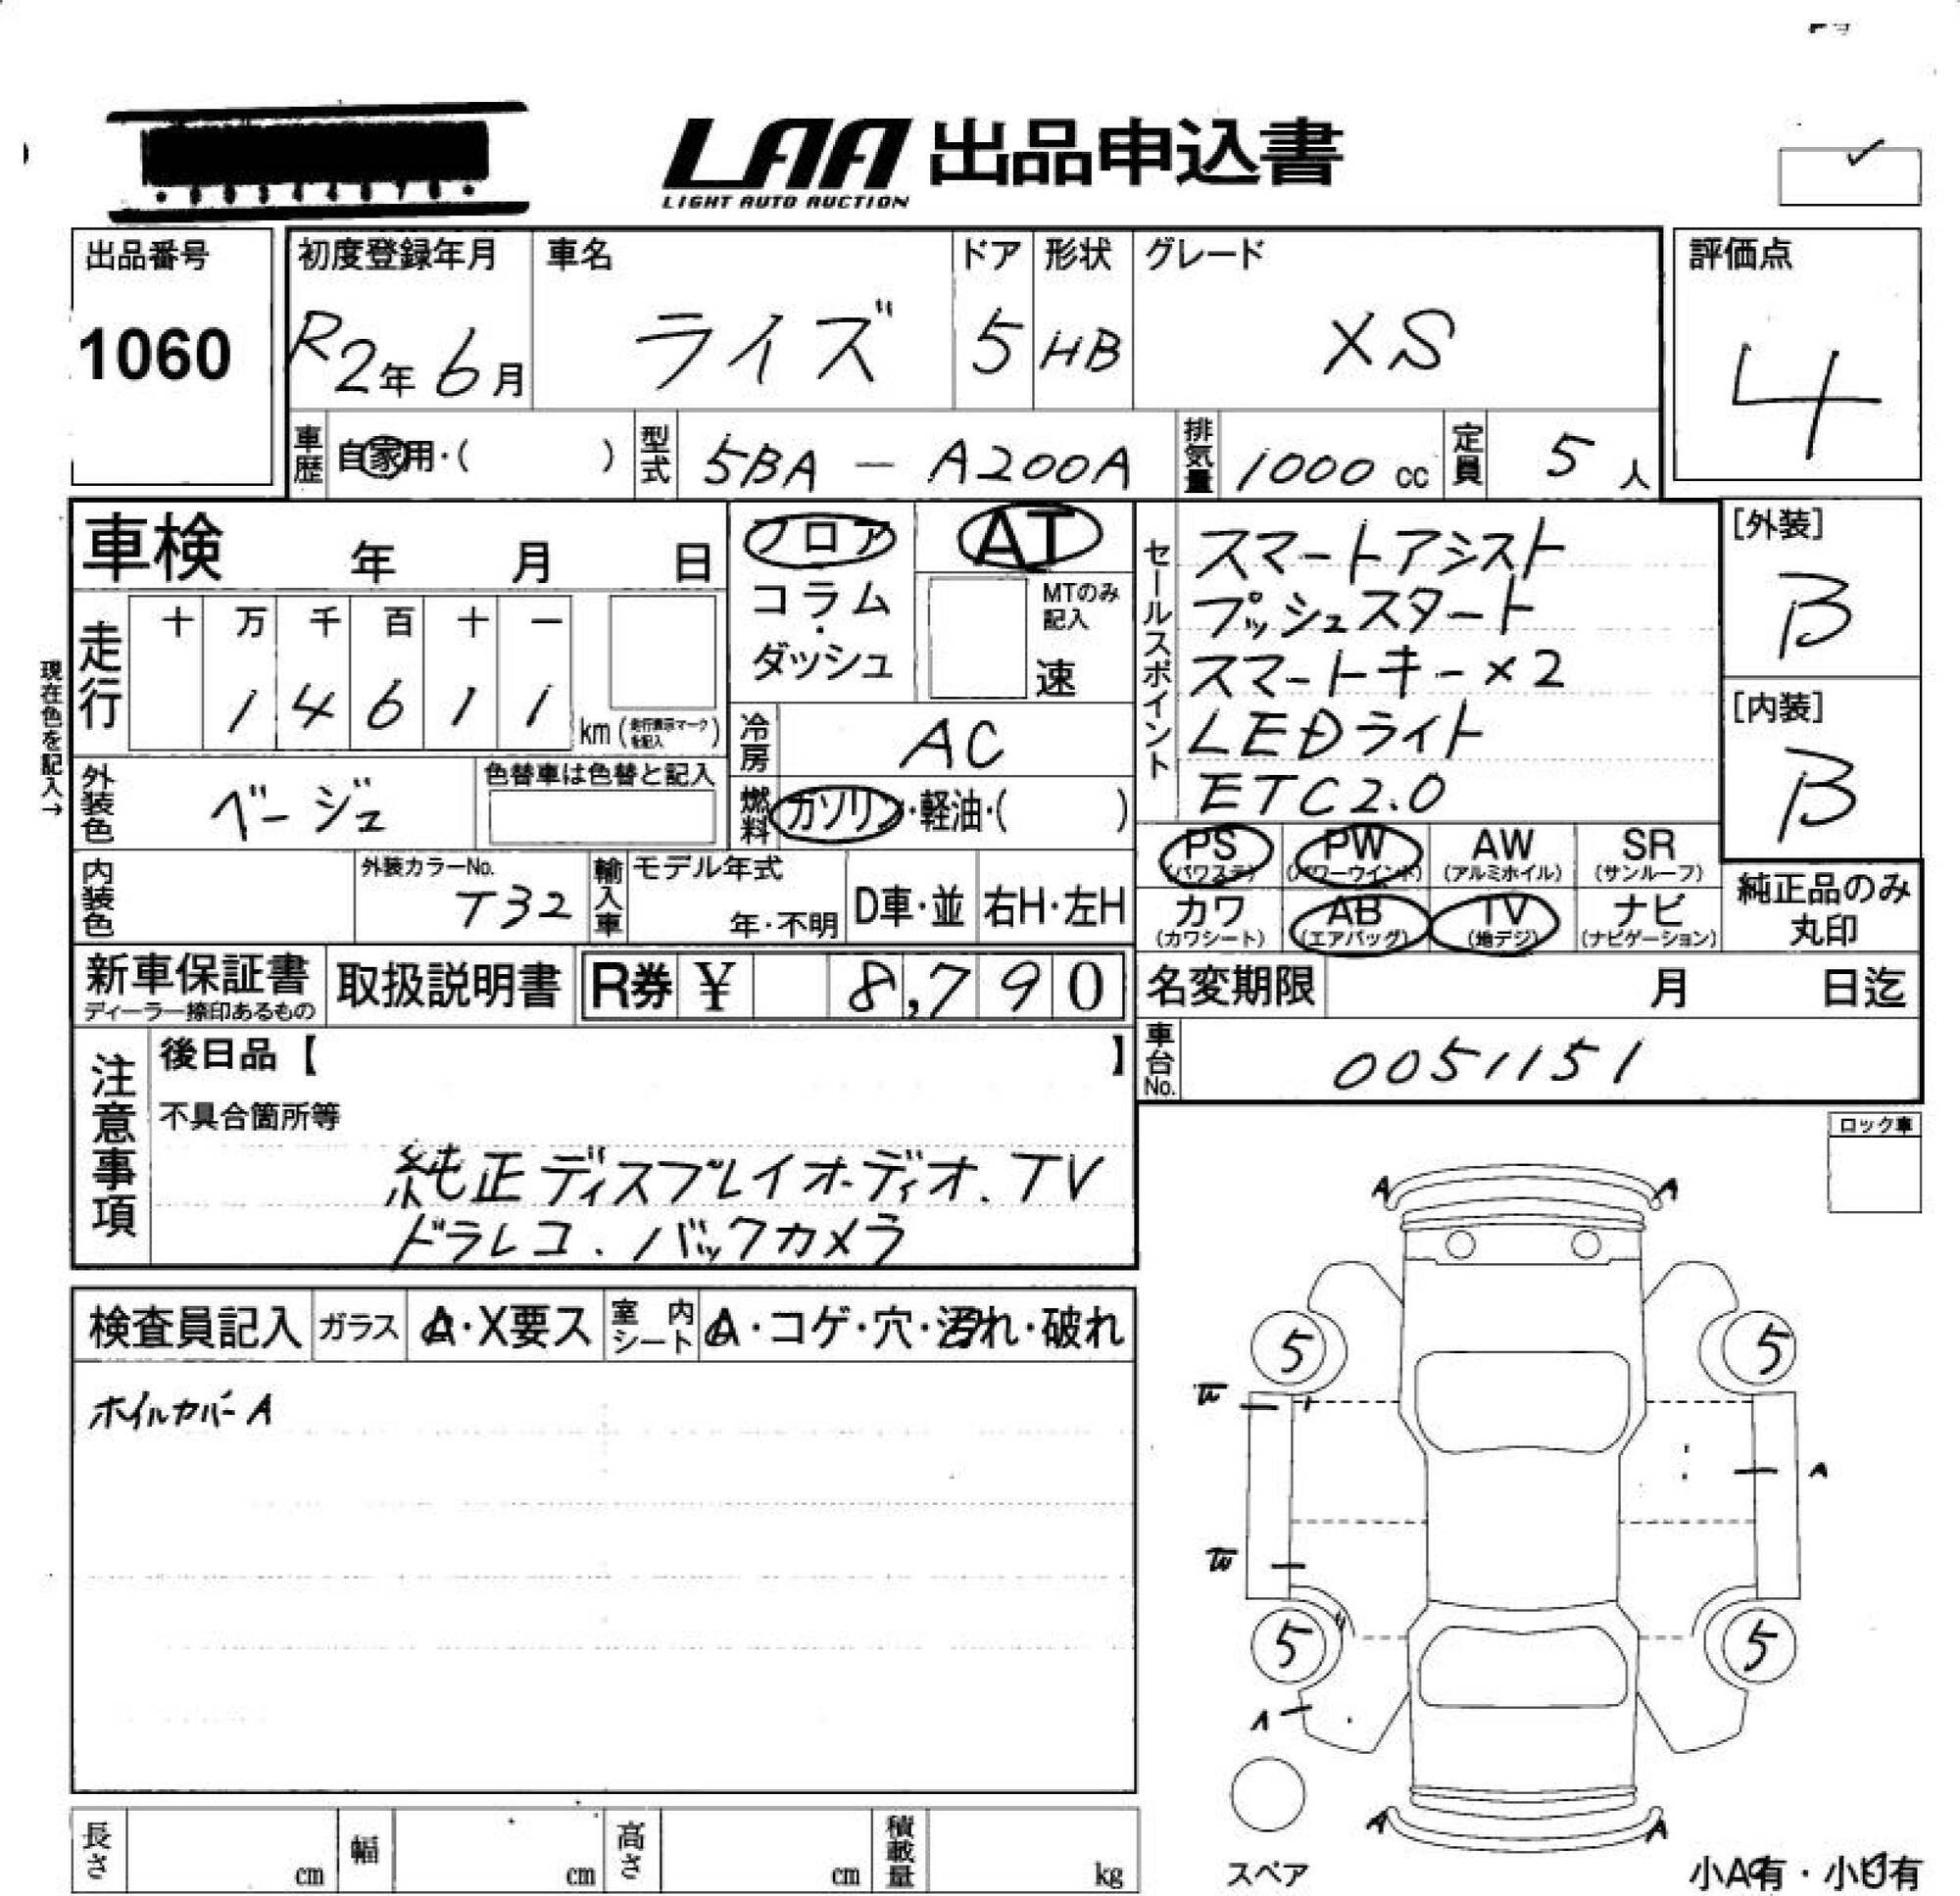 LAA 出品申込書
LIGHT AUTO AUCTION
出品番号
1060
初度登録年月
R2年6月
車名
ライズ
ドア
5
形状
HB
グレード
XS
評価点
4
車歴
自家用・( )
型式
5BA - A200A
排気量
1000 cc
定員
5人
車検 年 月 日
フロア
コラム
・
ダッシュ
AT
MTのみ
記入
速
セールスポイント
スマートアシスト
プッシュスタート
スマートキー×2
LEDライト
ETC2.0
[外装]
B
[内装]
B
現在色を記入→
走行
十 万 千 百 十 一
1 4 6 1 1
km (走行表示マークを記入)
冷房
AC
外装色
ベージュ
色替車は色替と記入
燃料
ガソリン・軽油・( )
PS
(パワステ)
PW
(パワーウインド)
AW
(アルミホイル)
SR
(サンルーフ)
カワ
(カワシート)
AB
(エアバッグ)
TV
(地デジ)
ナビ
(ナビゲーション)
純正品のみ
丸印
内装色
外装カラーNo.
T32
輸入車
モデル年式
年・不明
D車・並
右H・左H
新車保証書
ディーラー捺印あるもの
取扱説明書
R券 ¥ 8,790
名変期限 月 日迄
車台No.
0051151
注意事項
後日品【 】
不具合箇所等
純正ディスプレイオーディオ、TV
ドラレコ、バックカメラ
ロック車
検査員記入
ガラス
A・X要ス
室内シート
A・コゲ・穴・汚れ・破れ
ホイルカバーA
A A
5 5
W
A
W
5 5
A
A A
スペア
小A有・小U有
長さ cm
幅 cm
高さ cm
積載量 kg